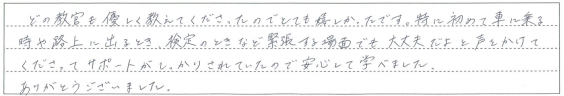 どの教官も優しく教えてくださったのでとても嬉しかったです。特に初めて車に乗る
時や路上に出るとき、検定のときなど緊張する場面でも大丈夫だよと声をかけて
くださってサポートがしっかりされていたので安心して学べました。
ありがとうございました。